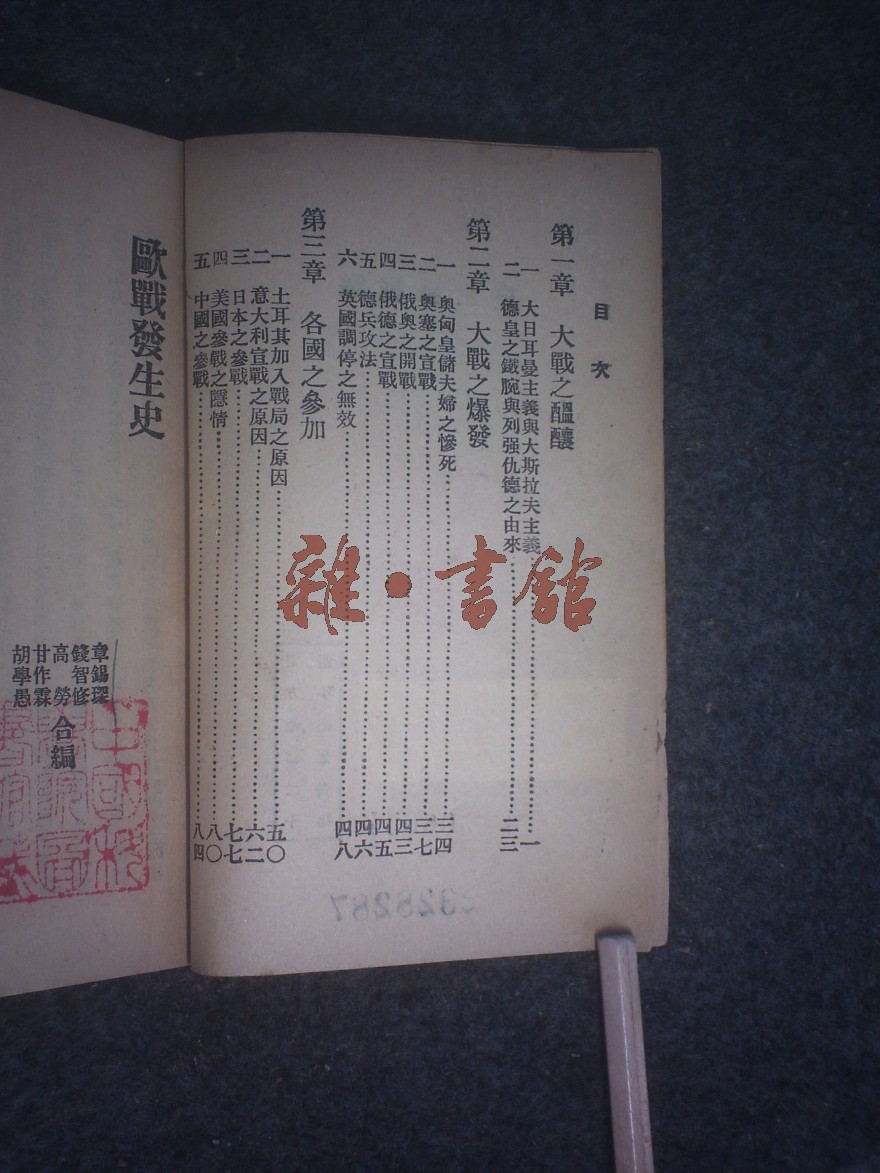 目次
第一章 大戰之醞釀
一 大日耳曼主義與大斯拉夫主義……一
二 德皇之鐵腕與列强仇德之由來……二三
第二章 大戰之爆發
一 奥匈皇儲夫婦之慘死……三四
二 奥塞之宣戰……三七
三 俄奥之開戰……四三
四 俄德之宣戰……四五
五 德兵攻法……四六
六 英國調停之無效……四八
第三章 各國之參加
一 土耳其加入戰局之原因……五〇
二 意大利宣戰之原因……六二
三 日本之參戰……七七
四 美國參戰之隱情……八〇
五 中國之參戰……八四
歐戰發生史
章錫琛
錢智修
高勞
甘作霖
胡學愚
合編
雜·書館
328287